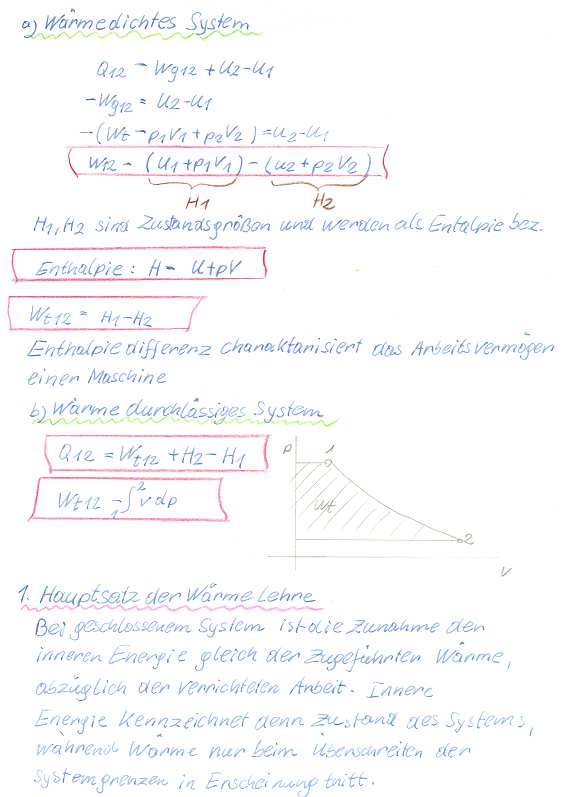 a) Wärmedichtes System
Q12 = Wg12 + U2 - U1
-Wg12 = U2 - U1
-(Wt - p1V1 + p2V2) = U2 - U1
W12 = (U1 + p1V1) - (U2 + p2V2)
H1 H2
H1, H2 sind Zustandsgrößen und werden als Entalpie bez.
Enthalpie: H = U+pV
Wt12 = H1-H2
Enthalpie differenz charaktarisiert das Arbeitsvermögen
einer Maschine
b) Wärme durchlässiges System
Q12 = Wt12 + H2 - H1
Wt12 = 1∫2 v dp
p 1
Wt
2
V
1. Hauptsatz der Wärme Lehre
Bei geschlossenem System ist die Zunahme der
inneren Energie gleich der Zugeführten Wärme,
abzüglich der verrichteten Arbeit. Innere
Energie Kennzeichnet denn Zustand des Systems,
während Wärme nur beim Überschreiten der
Systemgrenzen in Erscheinung tritt.